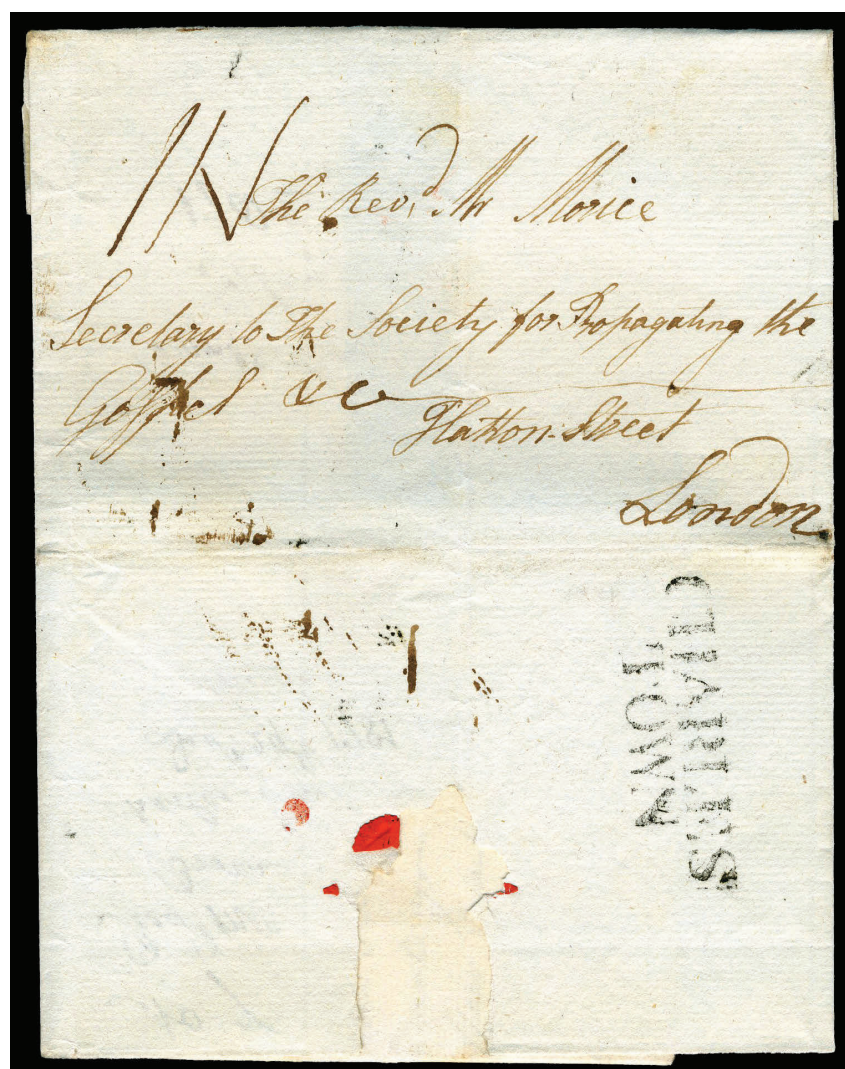 1N
The Rev,d Mr Morice
Secretary to The Society for Propagating the
Gospel &c
Hatton-Street
London
CHARLES
TOWN